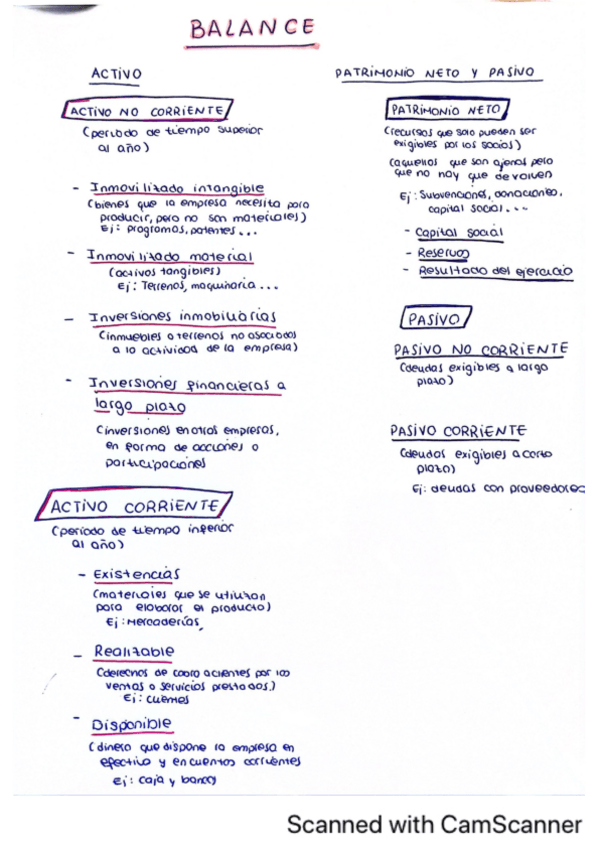 BALANCE
ACTIVO
ACTIVO NO CORRIENTE
(periodo de tiempo superior
al año)
- Inmovilizado intangible
(bienes que la empresa necesita para
producir, pero no son materiales)
Ej: programas, patentes...
- Inmovilizado material
(activos tangibles)
Ej: Terrenos, maquinaria...
- Inversiones inmobiliarias
(inmuebles o terrenos no asociados
a la actividad de la empresa)
- Inversiones financieras a
largo plazo
(inversiones en otras empresas,
en forma de acciones o
participaciones
ACTIVO CORRIENTE
(período de tiempo inferior
al año)
- Existencias
(materiales que se utilizan
para elaborar el producto)
Ej: Mercaderías
- Realizable
(derechos de cobro a clientes por las
ventas o servicios prestados.)
Ej: clientes
- Disponible
(dinero que dispone la empresa en
efectivo y en cuentas corrientes
Ej: caja y bancos
PATRIMONIO NETO Y PASIVO
PATRIMONIO NETO
(recursos que solo pueden ser
exigibles por los socios)
(aquellos que son ajenos pero
que no hay que devolver)
Ej: Subvenciones, donaciones,
capital social...
- Capital social
- Reservas
- Resultado del ejercicio
PASIVO
PASIVO NO CORRIENTE
(deudas exigibles a largo
plazo)
PASIVO CORRIENTE
(deudas exigibles a corto
plazo)
Ej: deudas con proveedores
Scanned with CamScanner